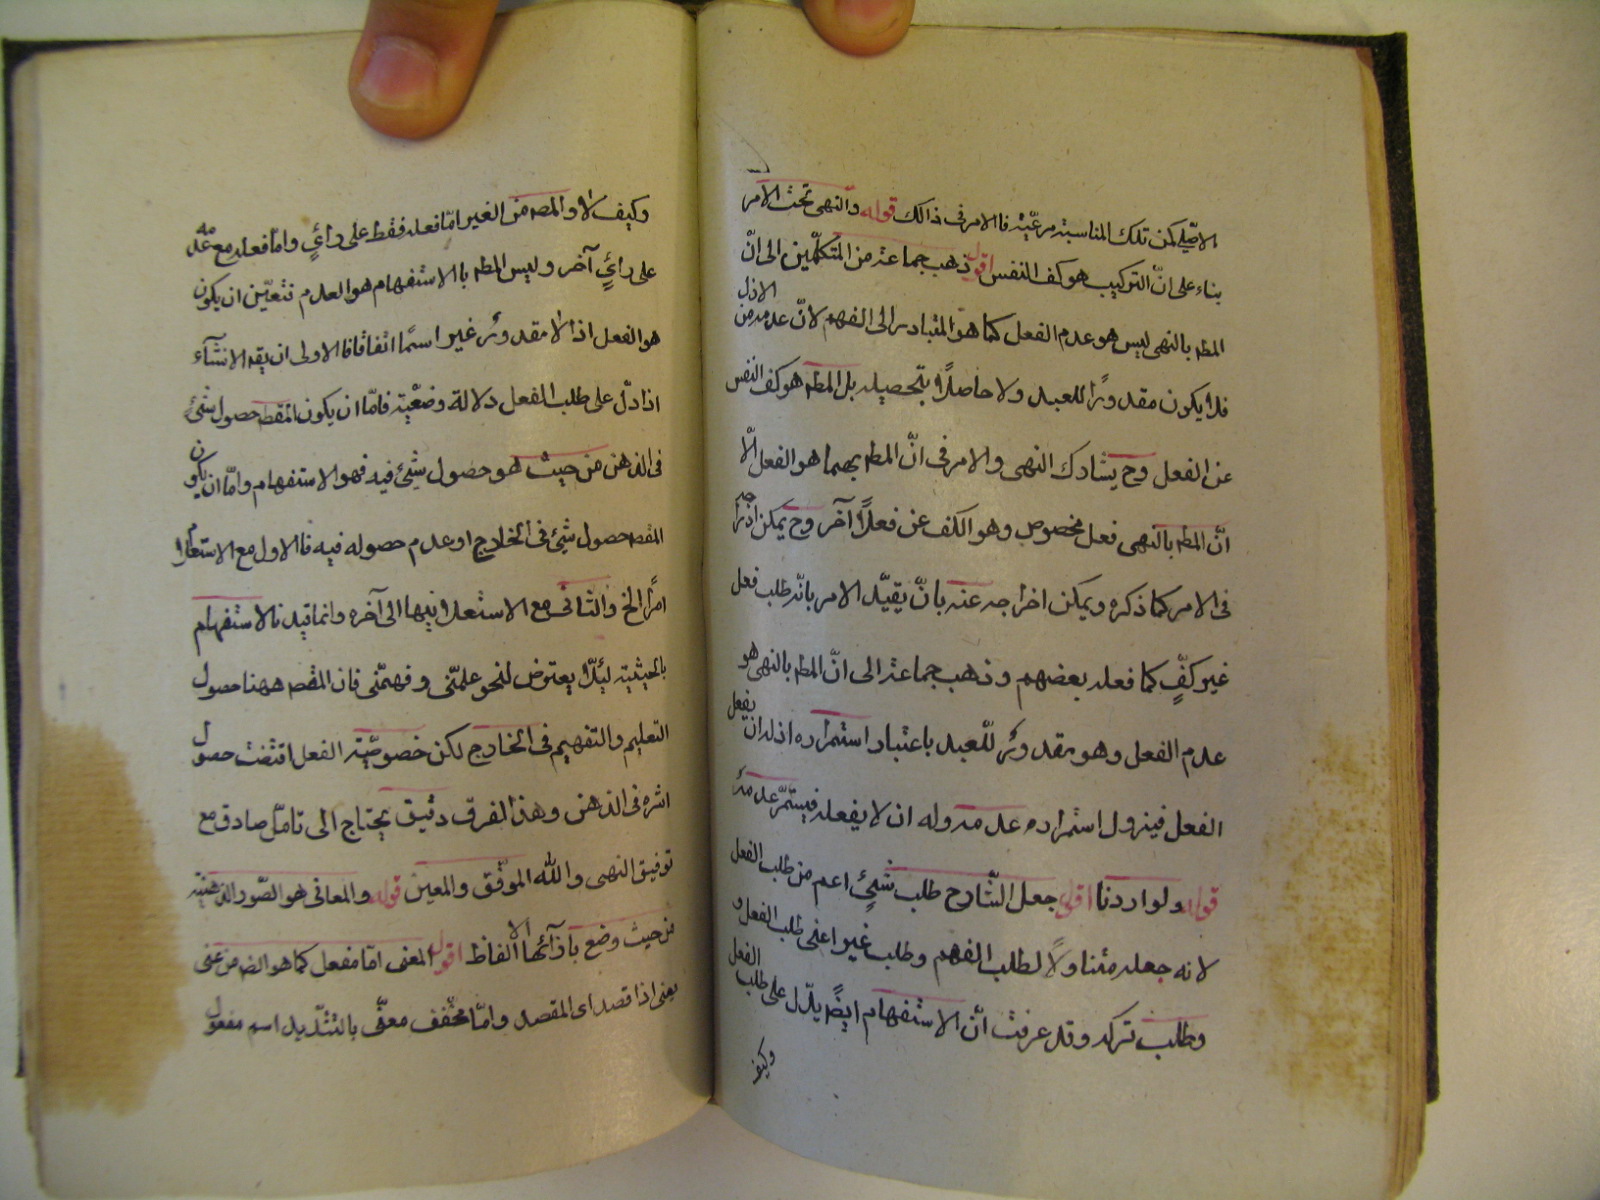 الاصلى لكن تلك المناسبة مرعيّة فا الامر فى ذالك قوله والنهى تحت الامر
بناء على انّ التركيب هو كف النفس اقول ذهب جماعة من المتكلّمين الى انّ
المطہ بالنهى ليس هو عدم الفعل كما هو المتبادر الى الفهم لانّ عدمه من الازل
فلا يكون مقدورًا للعبد ولا حاصلًا بتحصيله بل المطہ هو كف النفس
عن الفعل وح يشارك النهى والامر فى انّ المطہ بهما هو الفعل الّا
انّ المطہ بالنهى فعل مخصوص وهو الكف عن فعلًا آخر وح يمكن ادراجه
فى الامر كما ذكره ويمكن اخراجه عنه بانّ يقيّد الامر بانّه طلب فعل
غير كفٍّ كما فعله بعضهم وذهب جماعة الى انّ المطہ بالنهى هو
عدم الفعل وهو مقدورٌ للّعبد باعتبار استمراره اذ له ان يفعل
الفعل فيزول استمراره عدمه وله ان لا يفعله فيستمرّ عدمه
قوله ولو اردنا اقول جعل الشّارح طلب شئٍ اعم من طلب الفعل
لانه جعله متناولًا لطلب الفهم وطلب غير اعنى طلب الفعل و
وطلب تركه وقد عرفت انّ الاستفهام ايضً يدّل على طلب الفعل
وكيف
وكيف لا والمطہ من الغير امّا فعله فقط على رائٍ وامّا فعله مع عدمه
على رائٍ آخر وليس المطہ با الاستفهام هو العدم فتعيّن ان يكون
هو الفعل اذ لا مقدورٌ غير اسمًا اتفاقا فا الاولى ان يقہ الانشآء
اذا دلّ على طلب الفعل دلالة وضعيّة فامّا ان يكون المقصہ حصول شئ
فى الذهن من حيث هو حصول شئ فيه فهو الاستفهام وامّا ان يكون
المقصہ حصول شئ فى الخارج او عدم حصوله فيه فا الاول مع الاستعلا
امرًا الخ والثانى مع الاستعلا نهيها الى آخره وانما قيد نا الاستفهام
بالحيثية لئلّا يعترض لنحو علمنى وفهمنى فان المقصہ ههنا حصول
التعليم والتفهيم فى الخارج لكن خصوصيّة الفعل اقتضت حصول
اثره فى الذهن وهذا الفرق دقيق يحتاج الى تامّل صادق مع
توفيق النهى والله الموفّق والمعين قوله والمعانى هو الصّور الذهنية
من حيث وضع باذآئها الالفاظ اقول المعنى امّا مفعل كما هو الظہ من عنى
يعنى اذا قصد اى المقصد وامّا مخفف معنىّ بالتشديد اسم مفعول